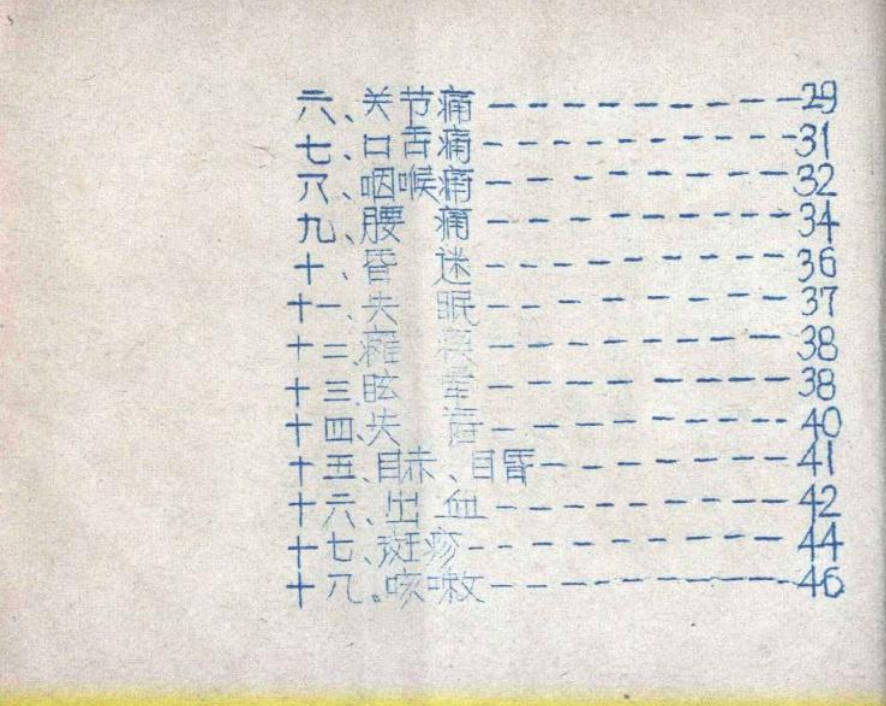 六、关节痛----------29
七、口舌痛----------31
八、咽喉痛----------32
九、腰 痛----------34
十、昏 迷----------36
十一、失 眠----------37
十二、瘫 痪----------38
十三、眩 晕----------38
十四、失 语----------40
十五、目赤、目昏----------41
十六、出 血----------42
十七、斑疹----------44
十八、咳嗽----------46